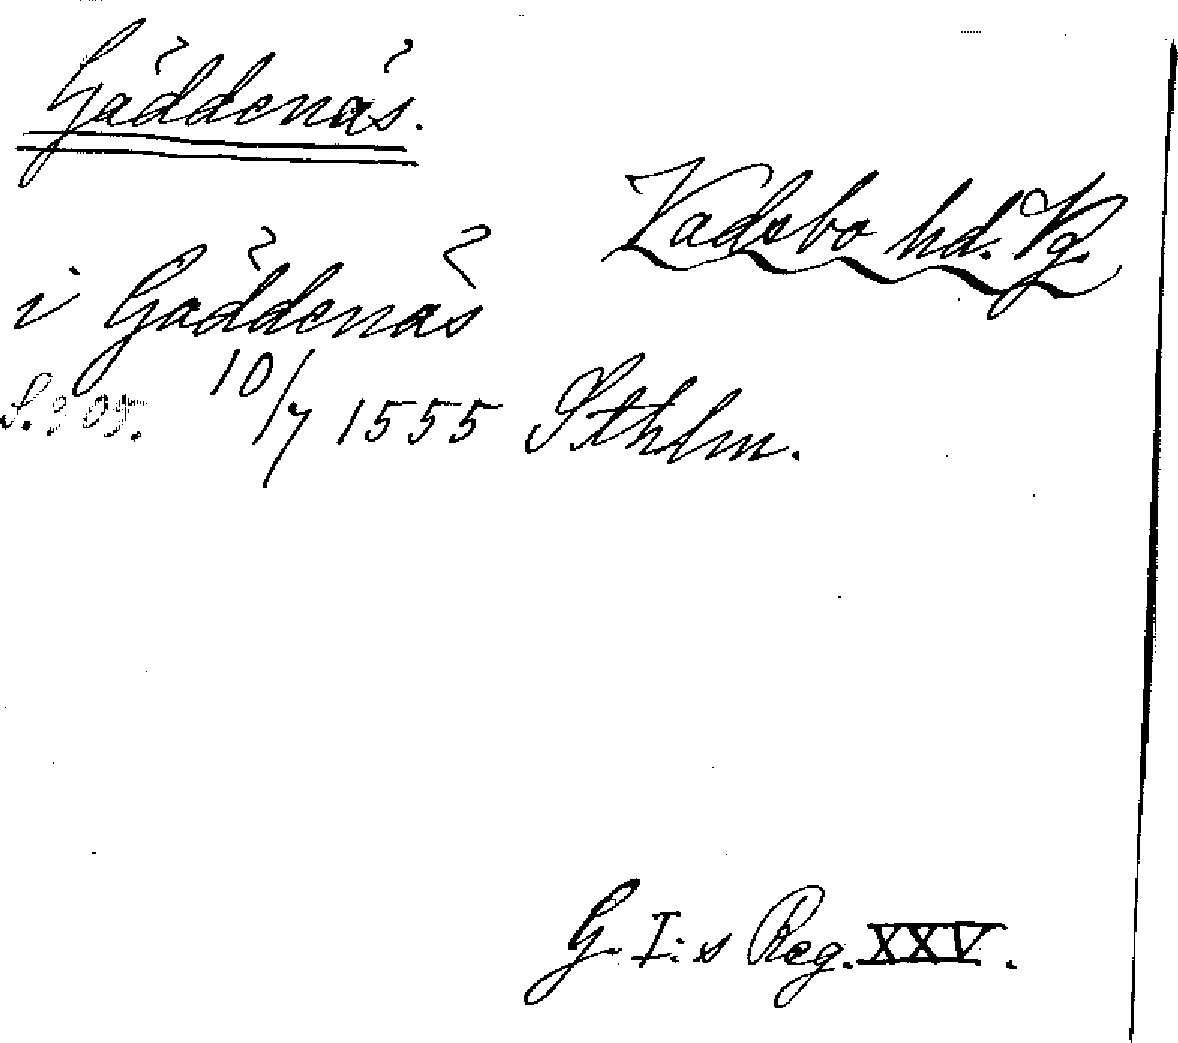 Gäddenäs.
Vadsbo hd. Vg.
i Gäddenäs
S. 305. 10/7 1555 Sthlm.
G. I:s Reg. XXV.